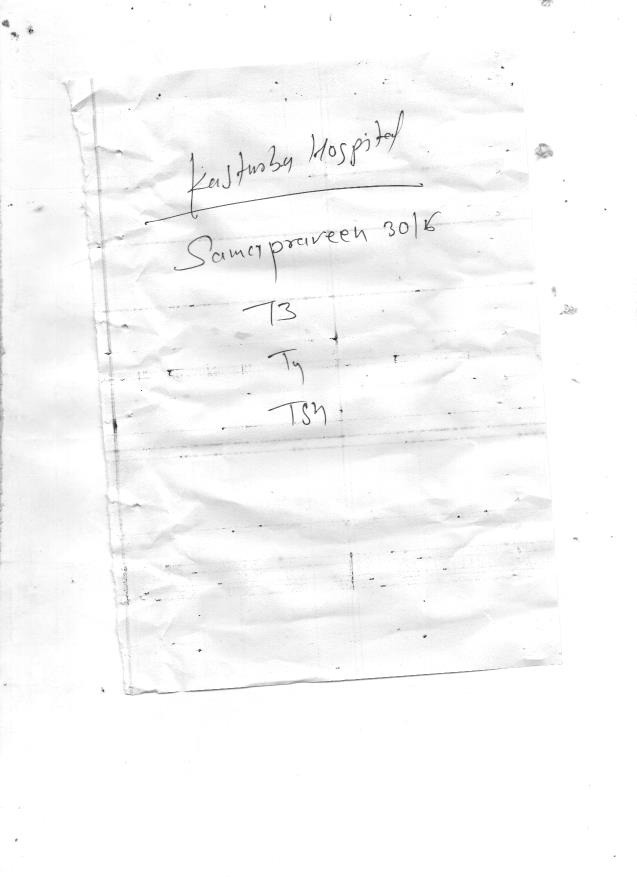 Kasturba Hospital
Samapraveen 30/F
T3
T4
TSH